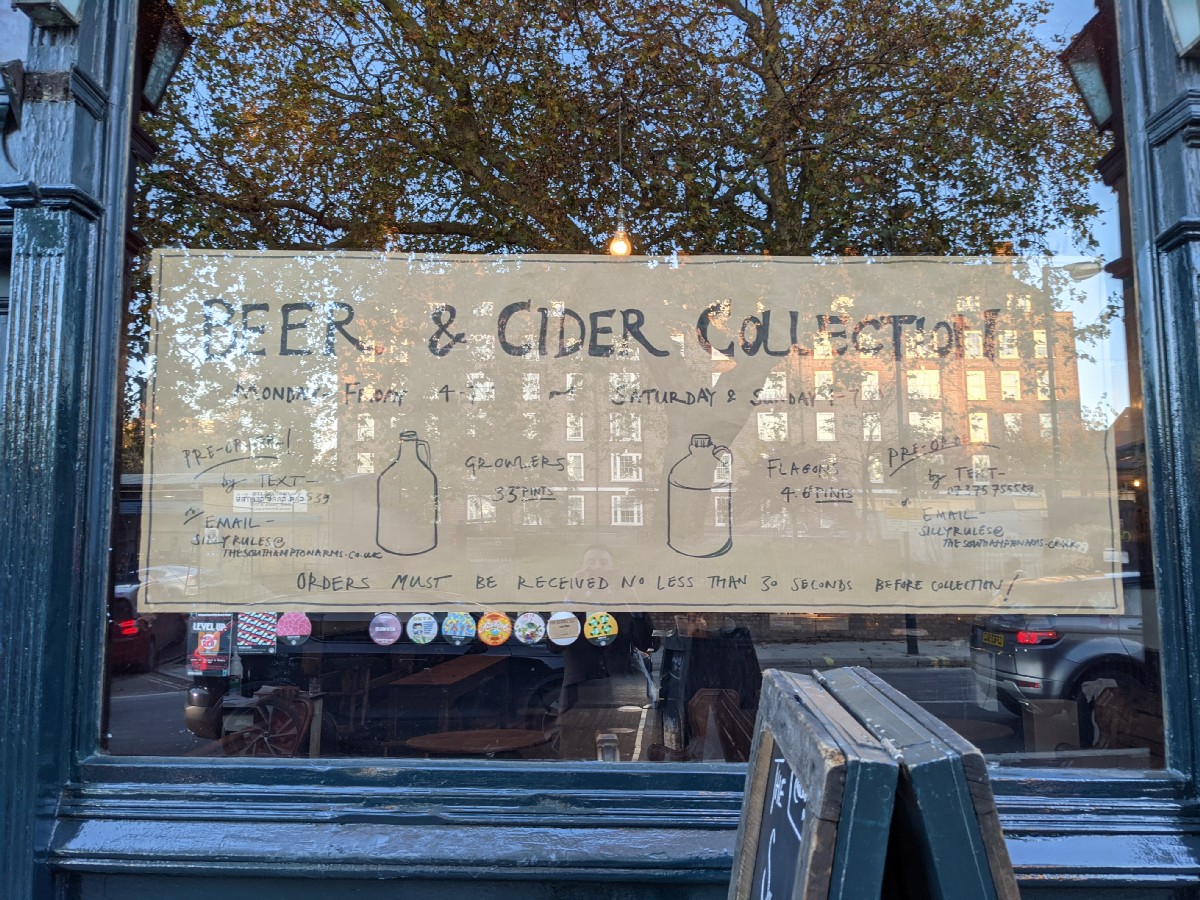 BEER & CIDER COLLECTION
MONDAY - FRIDAY 4-7 ~ SATURDAY & SUNDAY
PRE-ORDER!
by TEXT-
or EMAIL-
SILLYRULES@
THESOUTHAMPTONARMS.CO.UK
GROWLERS
3.3 PINTS
FLAGONS
4.6 PINTS
PRE-ORDER
by TEXT-
or
EMAIL-
SILLYRULES@
THESOUTHAMPTONARMS.CO.UK
ORDERS MUST BE RECEIVED NO LESS THAN 30 SECONDS BEFORE COLLECTION!
LEVEL UP
THE